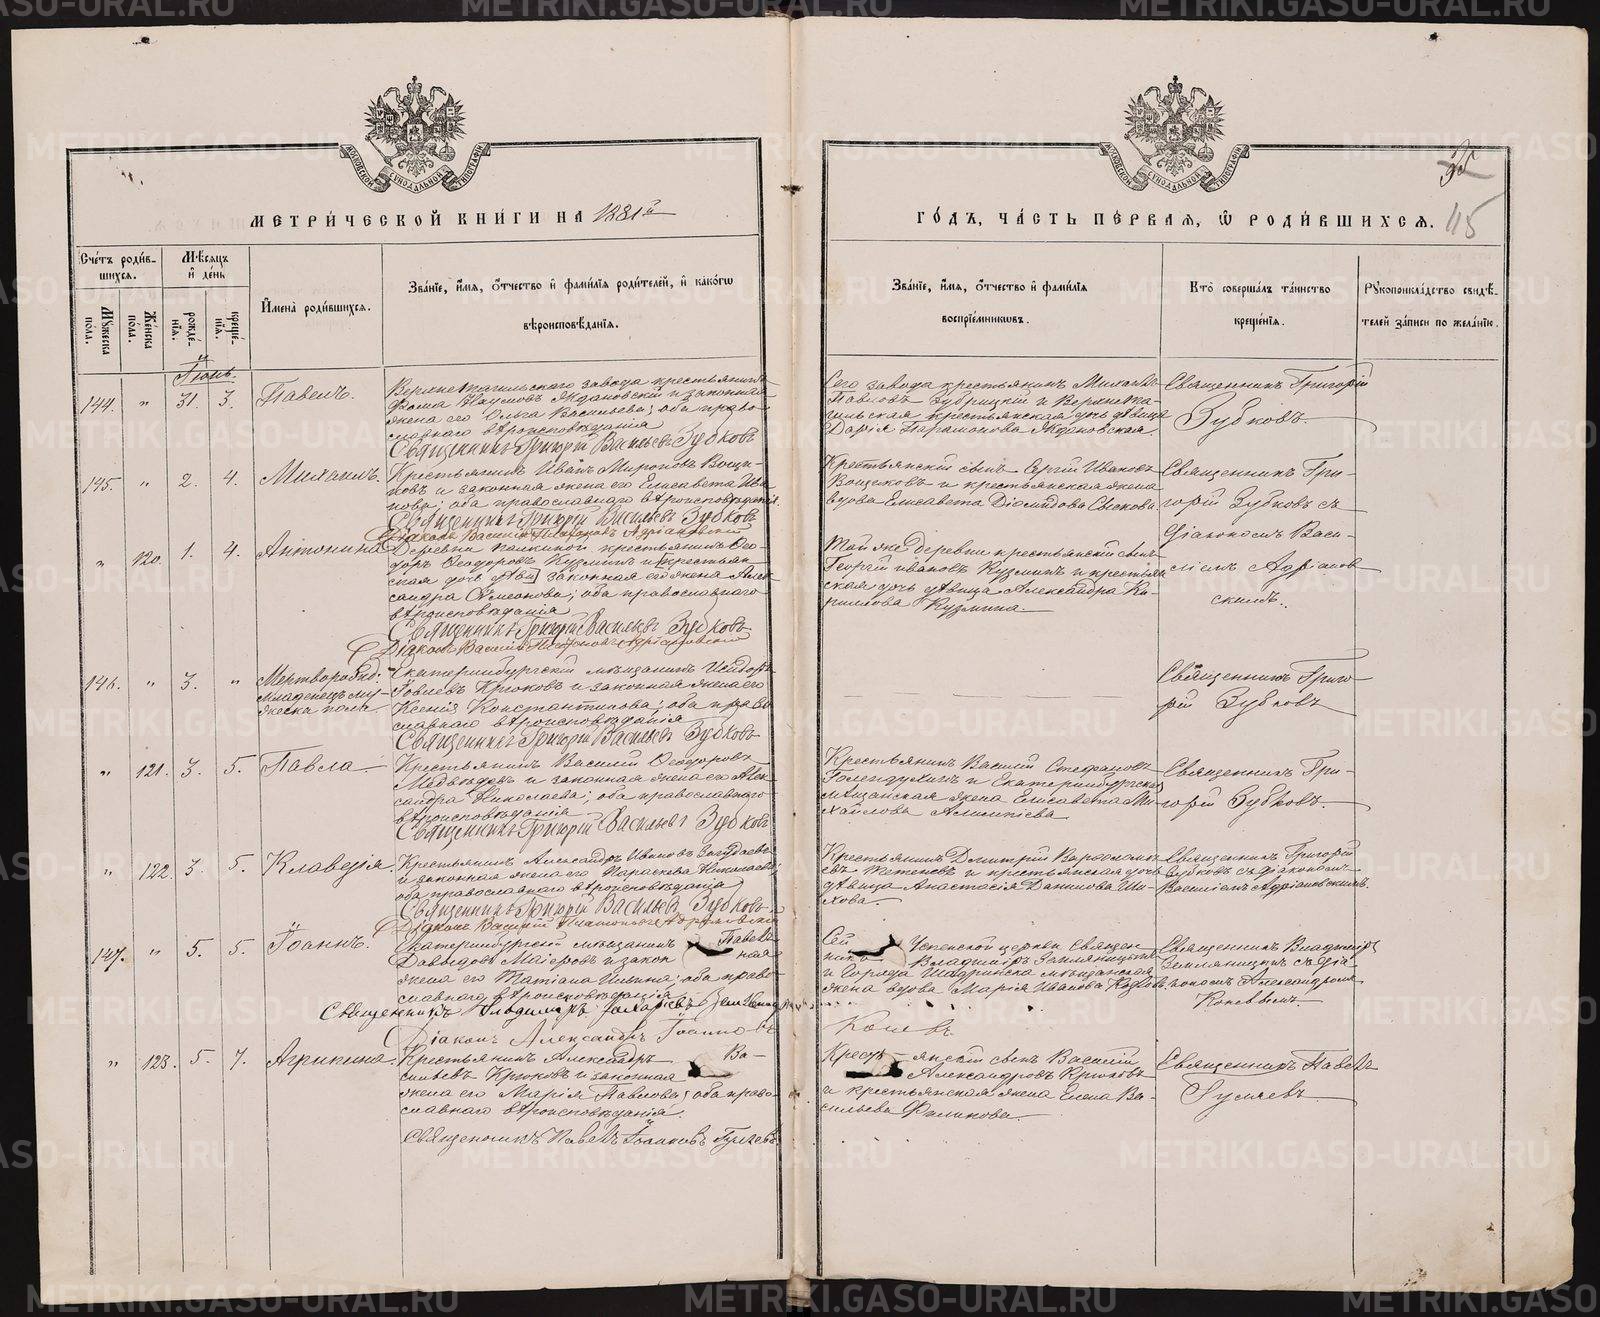 МЕТРИЧЕСКОЙ КНИГИ НА 1881й
Счетъ родившихся.
Мужеска пола.
Женска пола.
Мѣсяцъ и день
рожденія.
крещенія.
Имена родившихся.
Званіе, имя, отчество и фамилія родителей, и какогѡ
вѣроисповѣданія.
ГОДЪ, ЧАСТЬ ПЕРВАЯ, Ѡ РОДИВШИХСЯ. 115
Званіе, имя, отчество и фамилія
воспріемниковъ.
Кто совершалъ таинство
крещенія.
Рукоприкладство свидѣ-
телей записи по желанію.
144. " 31. 3. Павелъ.
Верхнетагильского завода крестьянинъ
Фома Наумовъ Ждановскій и законная
жена его Ольга Васильева; оба право-
славнаго вѣроисповѣданія
Священникъ Григорій Васильевъ Зубковъ
Сего завода крестьянинъ Михаилъ
Павловъ Зубрицкій и Верхнета-
гильская крестьянская дочь дѣвица
Дарія Парамонова Ждановская.
Священникъ Григорій
Зубковъ.
145. " 2. 4. Михаилъ.
Крестьянинъ Иванъ Мироновъ Вощи-
ковъ и законная жена его Елисавета Ива-
нова; оба православнаго вѣроисповѣданія.
Священникъ Григорій Васильевъ Зубковъ
Діаконъ Василій Платоновъ Адріановскій
Крестьянскій сынъ Сергій Ивановъ
Вощиковъ и крестьянская жена
вдова Елисавета Діомидова
Священникъ Гри-
горій Зубковъ съ
Діакономъ Васи-
ліемъ Адріанов
скимъ.
" 120. 1. 4. Антонина
Деревни крестьянинъ Ѳео-
доръ Ѳеодоровъ Кузминъ и крестьян-
ская дочь законная его жена Алек-
сандра Симеонова; оба православнаго
вѣроисповѣданія
Священникъ Григорій Васильевъ Зубковъ
Діаконъ Василій Платоновъ Адріановскій
Той же деревни крестьянскій сынъ
Георгій Ивановъ Кузминъ и крестьян
ская дочь дѣвица Александра Ки-
рилова Кузмина.
146. " 3. " Мертворожд:
младенецъ му-
жеска пола
Екатеринбургскій мѣщанинъ Исидоръ
Іовлевъ Крюковъ и законная жена его
Ксенія Константинова; оба право
славнаго вѣроисповѣданія
Священникъ Григорій Васильевъ Зубковъ
Священникъ Григо-
рій Зубковъ
" 121. 3. 5. Павла.
Крестьянинъ Василій Ѳеодоровъ
Медвѣдевъ и законная жена его Алек
сандра Николаева; оба православнаго
вѣроисповѣданія
Священникъ Григорій Васильевъ Зубковъ
Крестьянинъ Василій Стефановъ
Голендухинъ и Екатеринбургская
мѣщанская жена Елисавета Ми-
хайлова Алимпіева
Священникъ Гри-
горій Зубковъ.
" 122. 3. 5. Клавдія.
Крестьянинъ Александръ Ивановъ
и законная жена его Параскева Николаева;
оба православнаго вѣроисповѣданія
Священникъ Григорій Васильевъ Зубковъ
Діаконъ Василій Платоновъ Адріановскій
Крестьянинъ Димитрій Варѳоломе-
евъ и крестьянская дочь
дѣвица Анастасія Данилова Ши-
хова.
Священникъ Григорій
Зубковъ съ діакономъ
Василіемъ Адріановскимъ.
147. " 5. 5. Іоаннъ.
Екатеринбургскій мѣщанинъ Павелъ
Давыдовъ Маіеровъ и закон ная
жена его Татіана Ильина; оба право-
славнаго вѣроисповѣданія
Священникъ Владиміръ Земляницынъ
Діаконъ Александръ Іоанновъ
Коневъ
Сей Успенской церкви Священ
никъ Владиміръ Земляницынъ
и города Шадринска мѣщанская
жена вдова Марія Иванова
Священникъ Владиміръ
Земляницынъ съ діа
кономъ Александромъ
Коневымъ.
" 123. 5. 7. Агрипина.
Крестьянинъ Александръ Ва-
сильевъ Крюковъ и законная
жена его Марія Павлова; оба право-
славнаго вѣроисповѣданія
Священникъ Павелъ Іоанновъ Гуляевъ
Крестьянскій сынъ Василій
Александровъ Крюковъ
и крестьянская жена Елена Ва-
сильева Филинова
Священникъ Павелъ
Гуляевъ